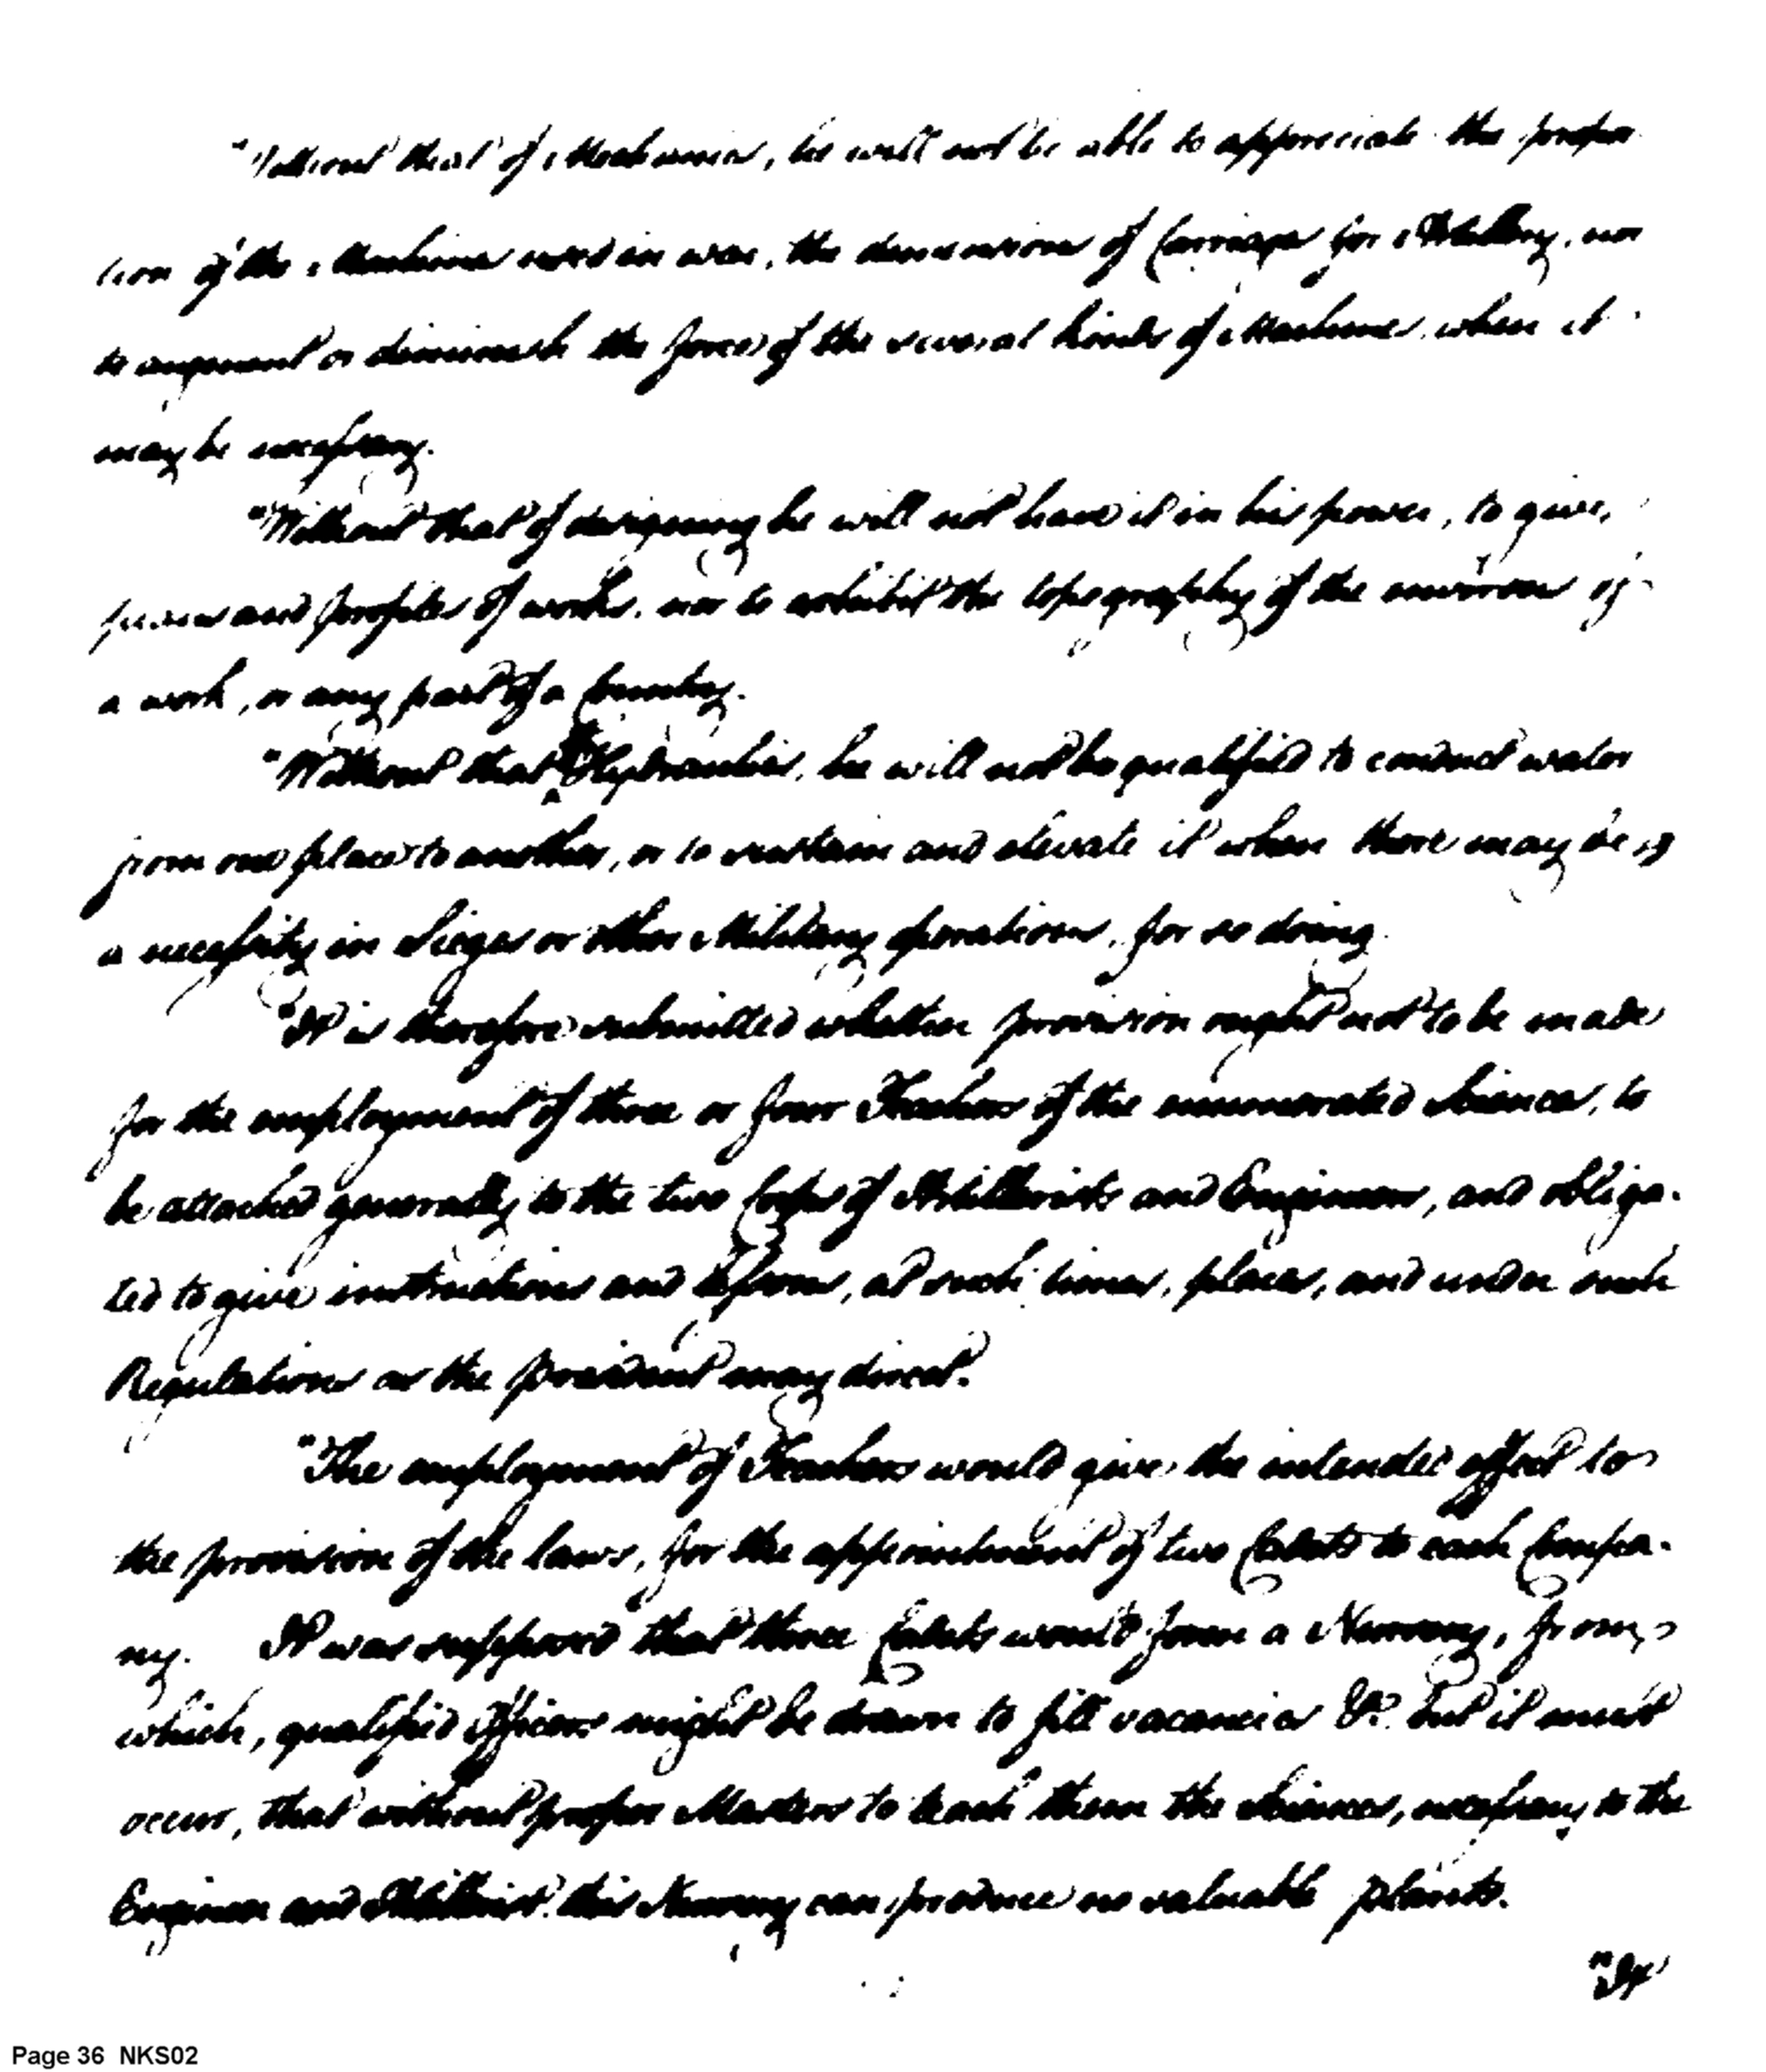 "Without that of Mechanics, he will not be able to appreciate the propor
tion of the Machines used in war, the dimensions of Carriages for Artillery, nor
to augment or diminish the forces of the several kinds of Machines, when it
may be necessary.
"Without that of designing he will not have it in his power, to give,
planes and profiles of works, nor to exhibit the topography of the environs of
a work, or any part of a Country.
"Without that Hydraulics, he will not be qualified to conduct water
from one place to another, or to sustain and elevate it when there may be
a necessity in Sieges or other Military operations, for so doing.
"It is therefore submitted whether provision ought not to be made
for the employment of three or four Teachers of the enumerated Sciences, to
be attached generally to the two Corps of Artillerists and Engineers, and obliga-
ted to give instructions and lessons, at such times, places, and under such
Regulations as the president may direct.
"The employment of Teachers would give the intended effect to
the provision of the laws, for the appointment of two Cadets to each Compa-
ny. It was supposed that these Cadets would form a Nursery, from
which, qualified Officers might be drawn to fill vacancies &c. but it must
occur, that without proper Masters to teach them the Sciences, necessary to the
Engineer and Artillerist, this Nursery can produce no valuable plants.
"It
Page 36 NKS02